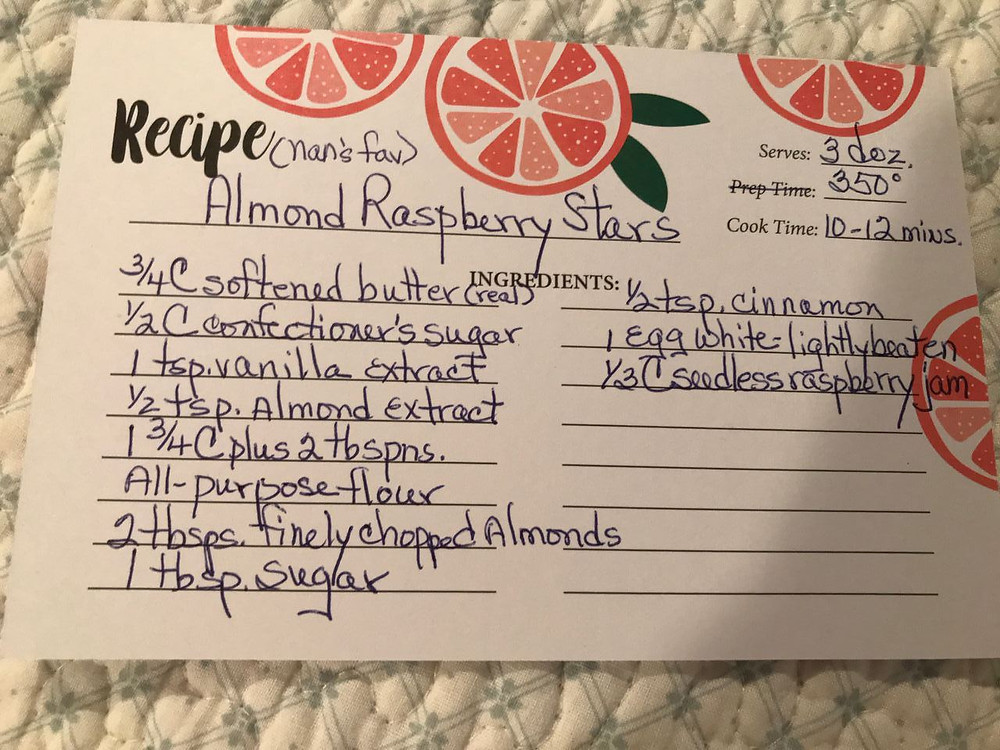 Recipe (nan's fav)
Almond Raspberry Stars
Serves: 3 doz.
Prep Time: 350°
Cook Time: 10-12 mins.
INGREDIENTS:
3/4 C softened butter (real)
1/2 C confectioner's sugar
1 tsp. vanilla extract
1/2 tsp. Almond extract
1 3/4 C plus 2 tbspns.
All-purpose flour
2 tbsps. finely chopped Almonds
1 tbsp. sugar
1/2 tsp. cinnamon
1 Egg white-lightly beaten
1/3 C seedless raspberry jam